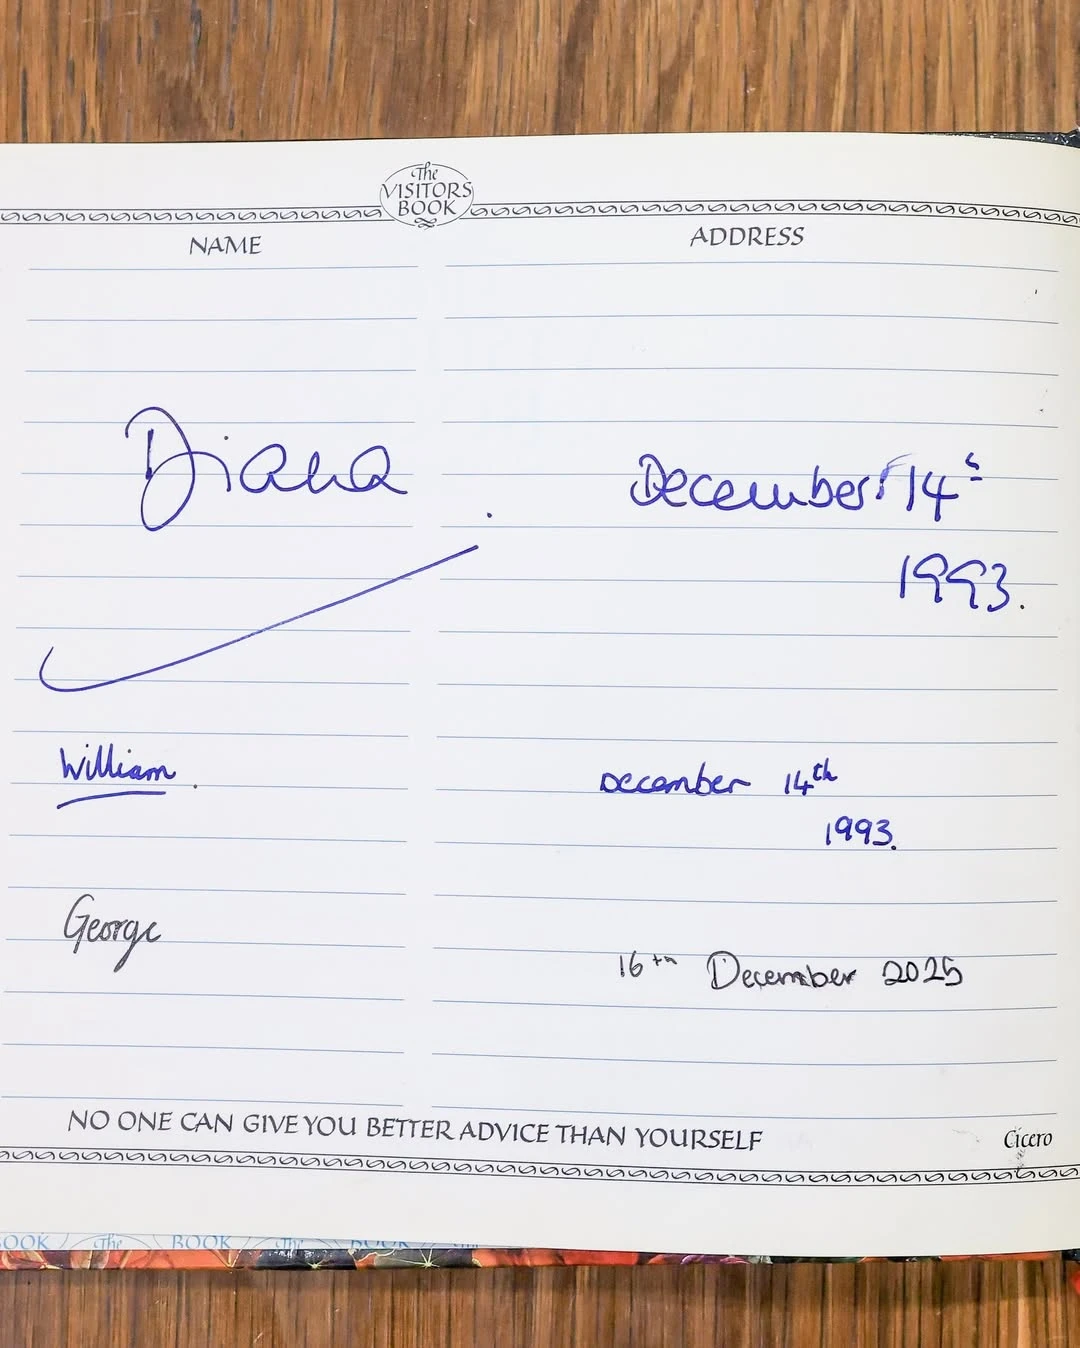 The
VISITORS
BOOK
NAME ADDRESS
Diana December 14th
1993.
William December 14th
1993.
George
16th December 2025
NO ONE CAN GIVE YOU BETTER ADVICE THAN YOURSELF Cicero
BOOK The BOOK The BOOK The